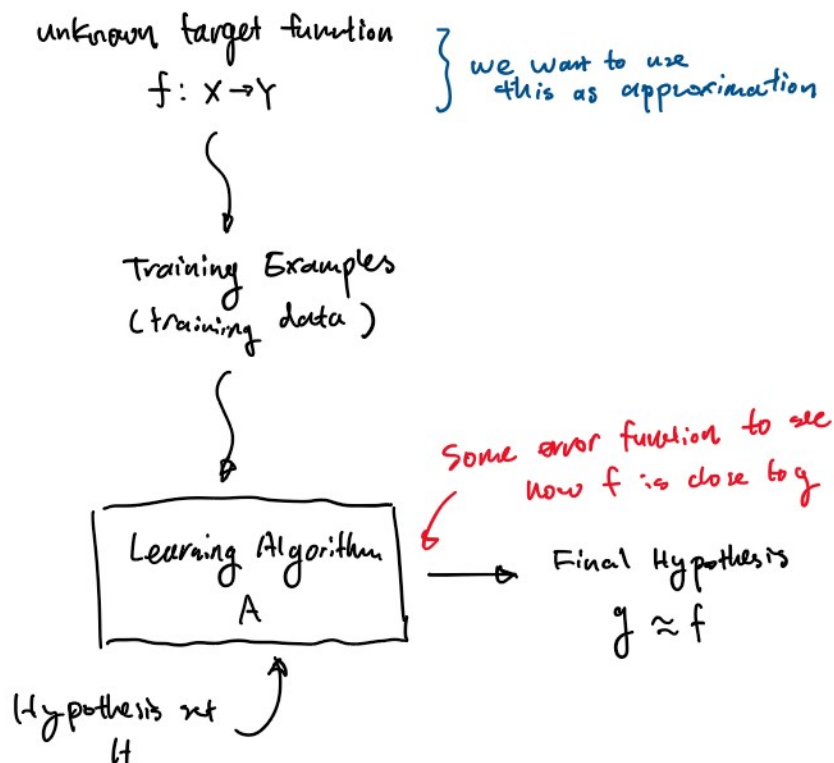 unknown target function
f: X → Y
we want to use
this as approximation
Training Examples
(training data)
Some error function to see
how f is close to g
Learning Algorithm
A
Final Hypothesis
g ≈ f
Hypothesis set
H